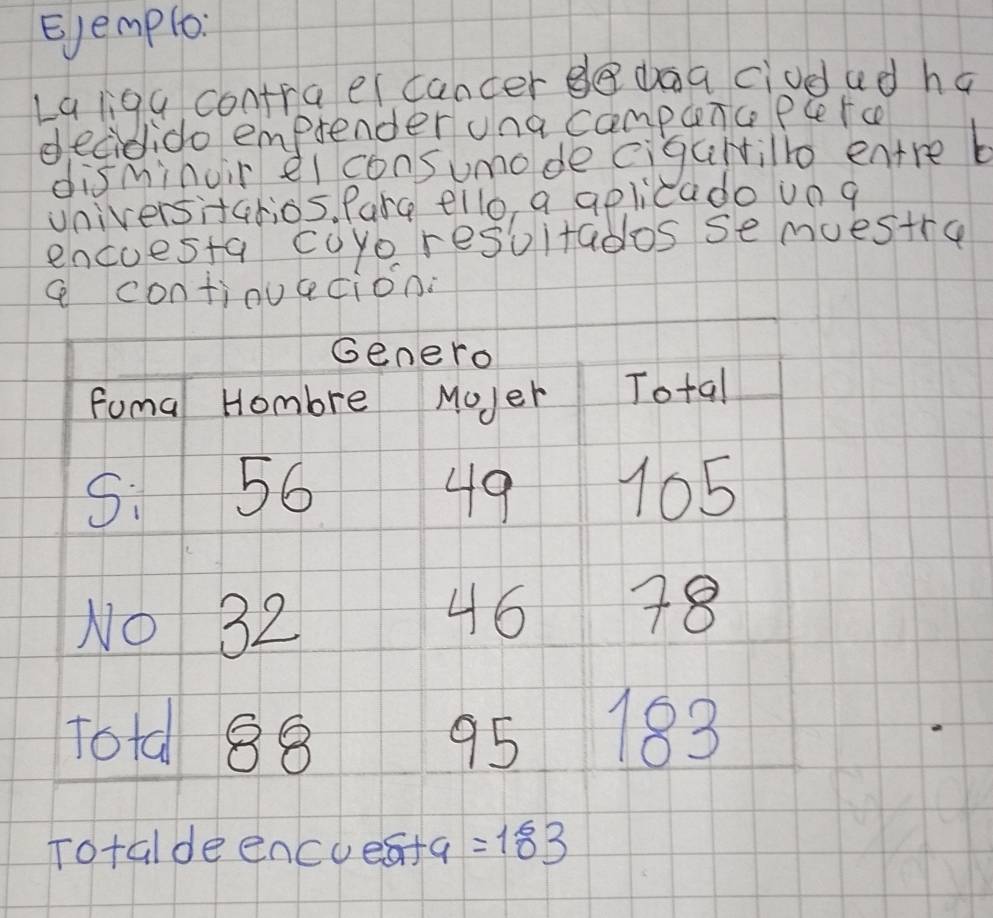 Ejemplo:
La liga contra el cancer de una ciudad ha
decidido emprender una campaña para
disminuir el consumo de cigarrillo entre
universitarios. Para ello, a aplicado una
encuesta cuyo resultados se muestra
a continuación:
Genero
Fuma Hombre Mujer Total
Si 56 49 105
No 32 46 78
Total 88 95 183
Total de encuesta = 183